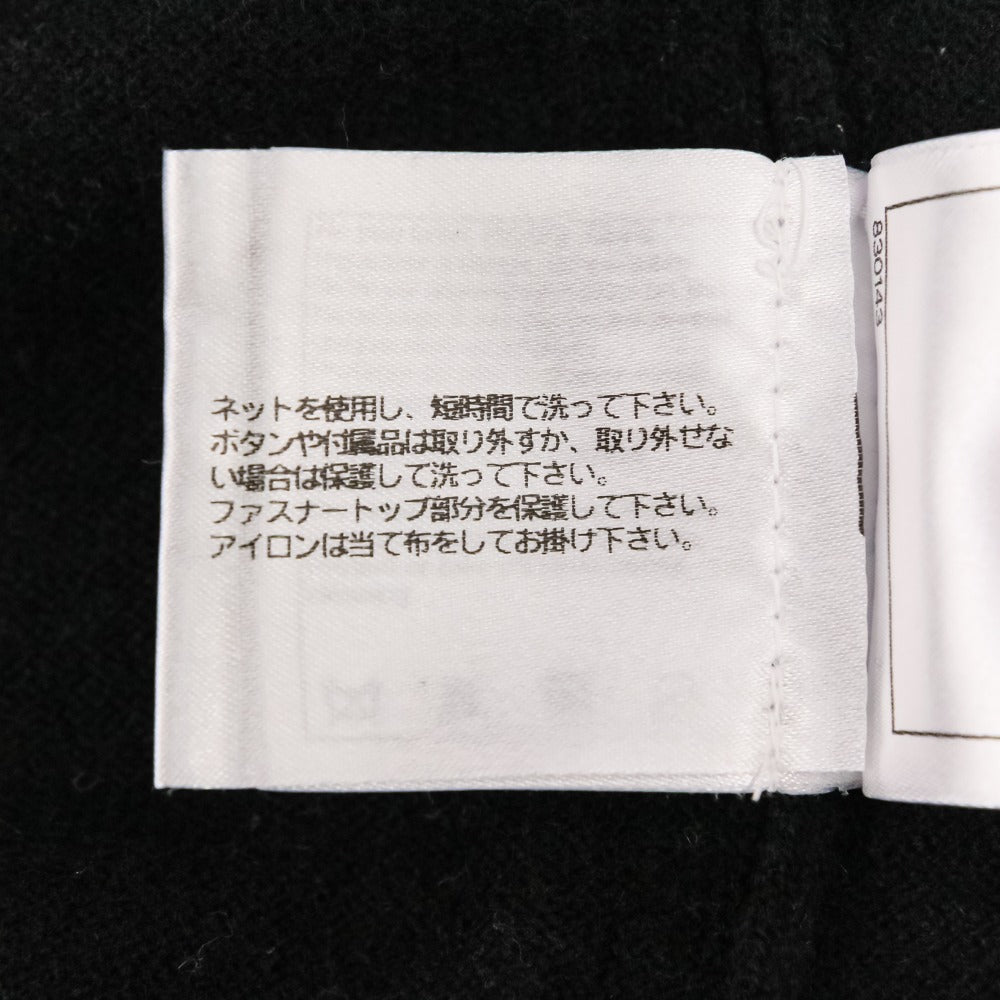 ネットを使用し、短時間で洗って下さい。
ボタンや付属品は取り外すか、取り外せな
い場合は保護して洗って下さい。
ファスナートップ部分を保護して下さい。
アイロンは当て布をしてお掛け下さい。
830143